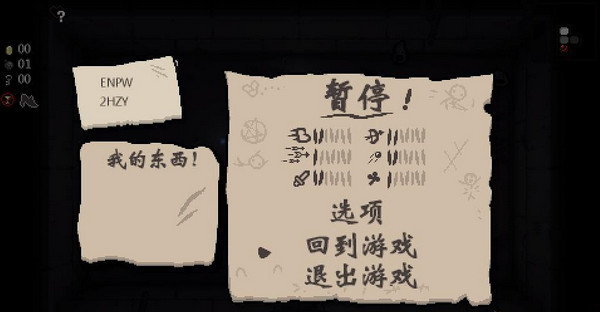 ?
00
01
00
ENPW
2HZY
我的东西!
暂停!
选项
回到游戏
退出游戏